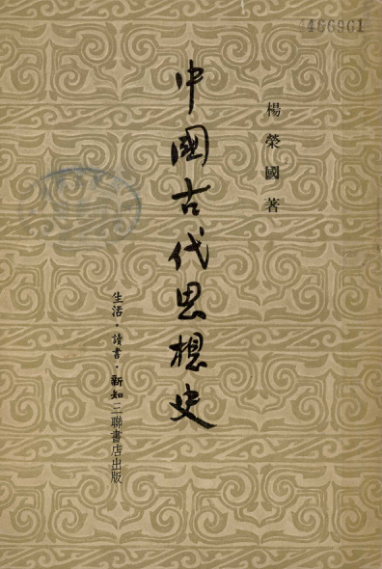 4466961
楊榮國著
中國古代思想史
生活·讀書·新知三聯書店出版